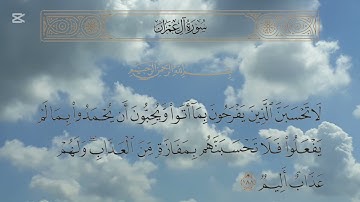 سُورَةُ آلِ عِمْرَانَ
بِسْمِ اللَّهِ الرَّحْمَٰنِ الرَّحِيمِ
لَا تَحْسَبَنَّ الَّذِينَ يَفْرَحُونَ بِمَا أَتَوا وَّيُحِبُّونَ أَن يُحْمَدُوا بِمَا لَمْ
يَفْعَلُوا فَلَا تَحْسَبَنَّهُم بِمَفَازَةٍ مِّنَ الْعَذَابِ ۖ وَلَهُمْ
عَذَابٌ أَلِيمٌ ١٨٨